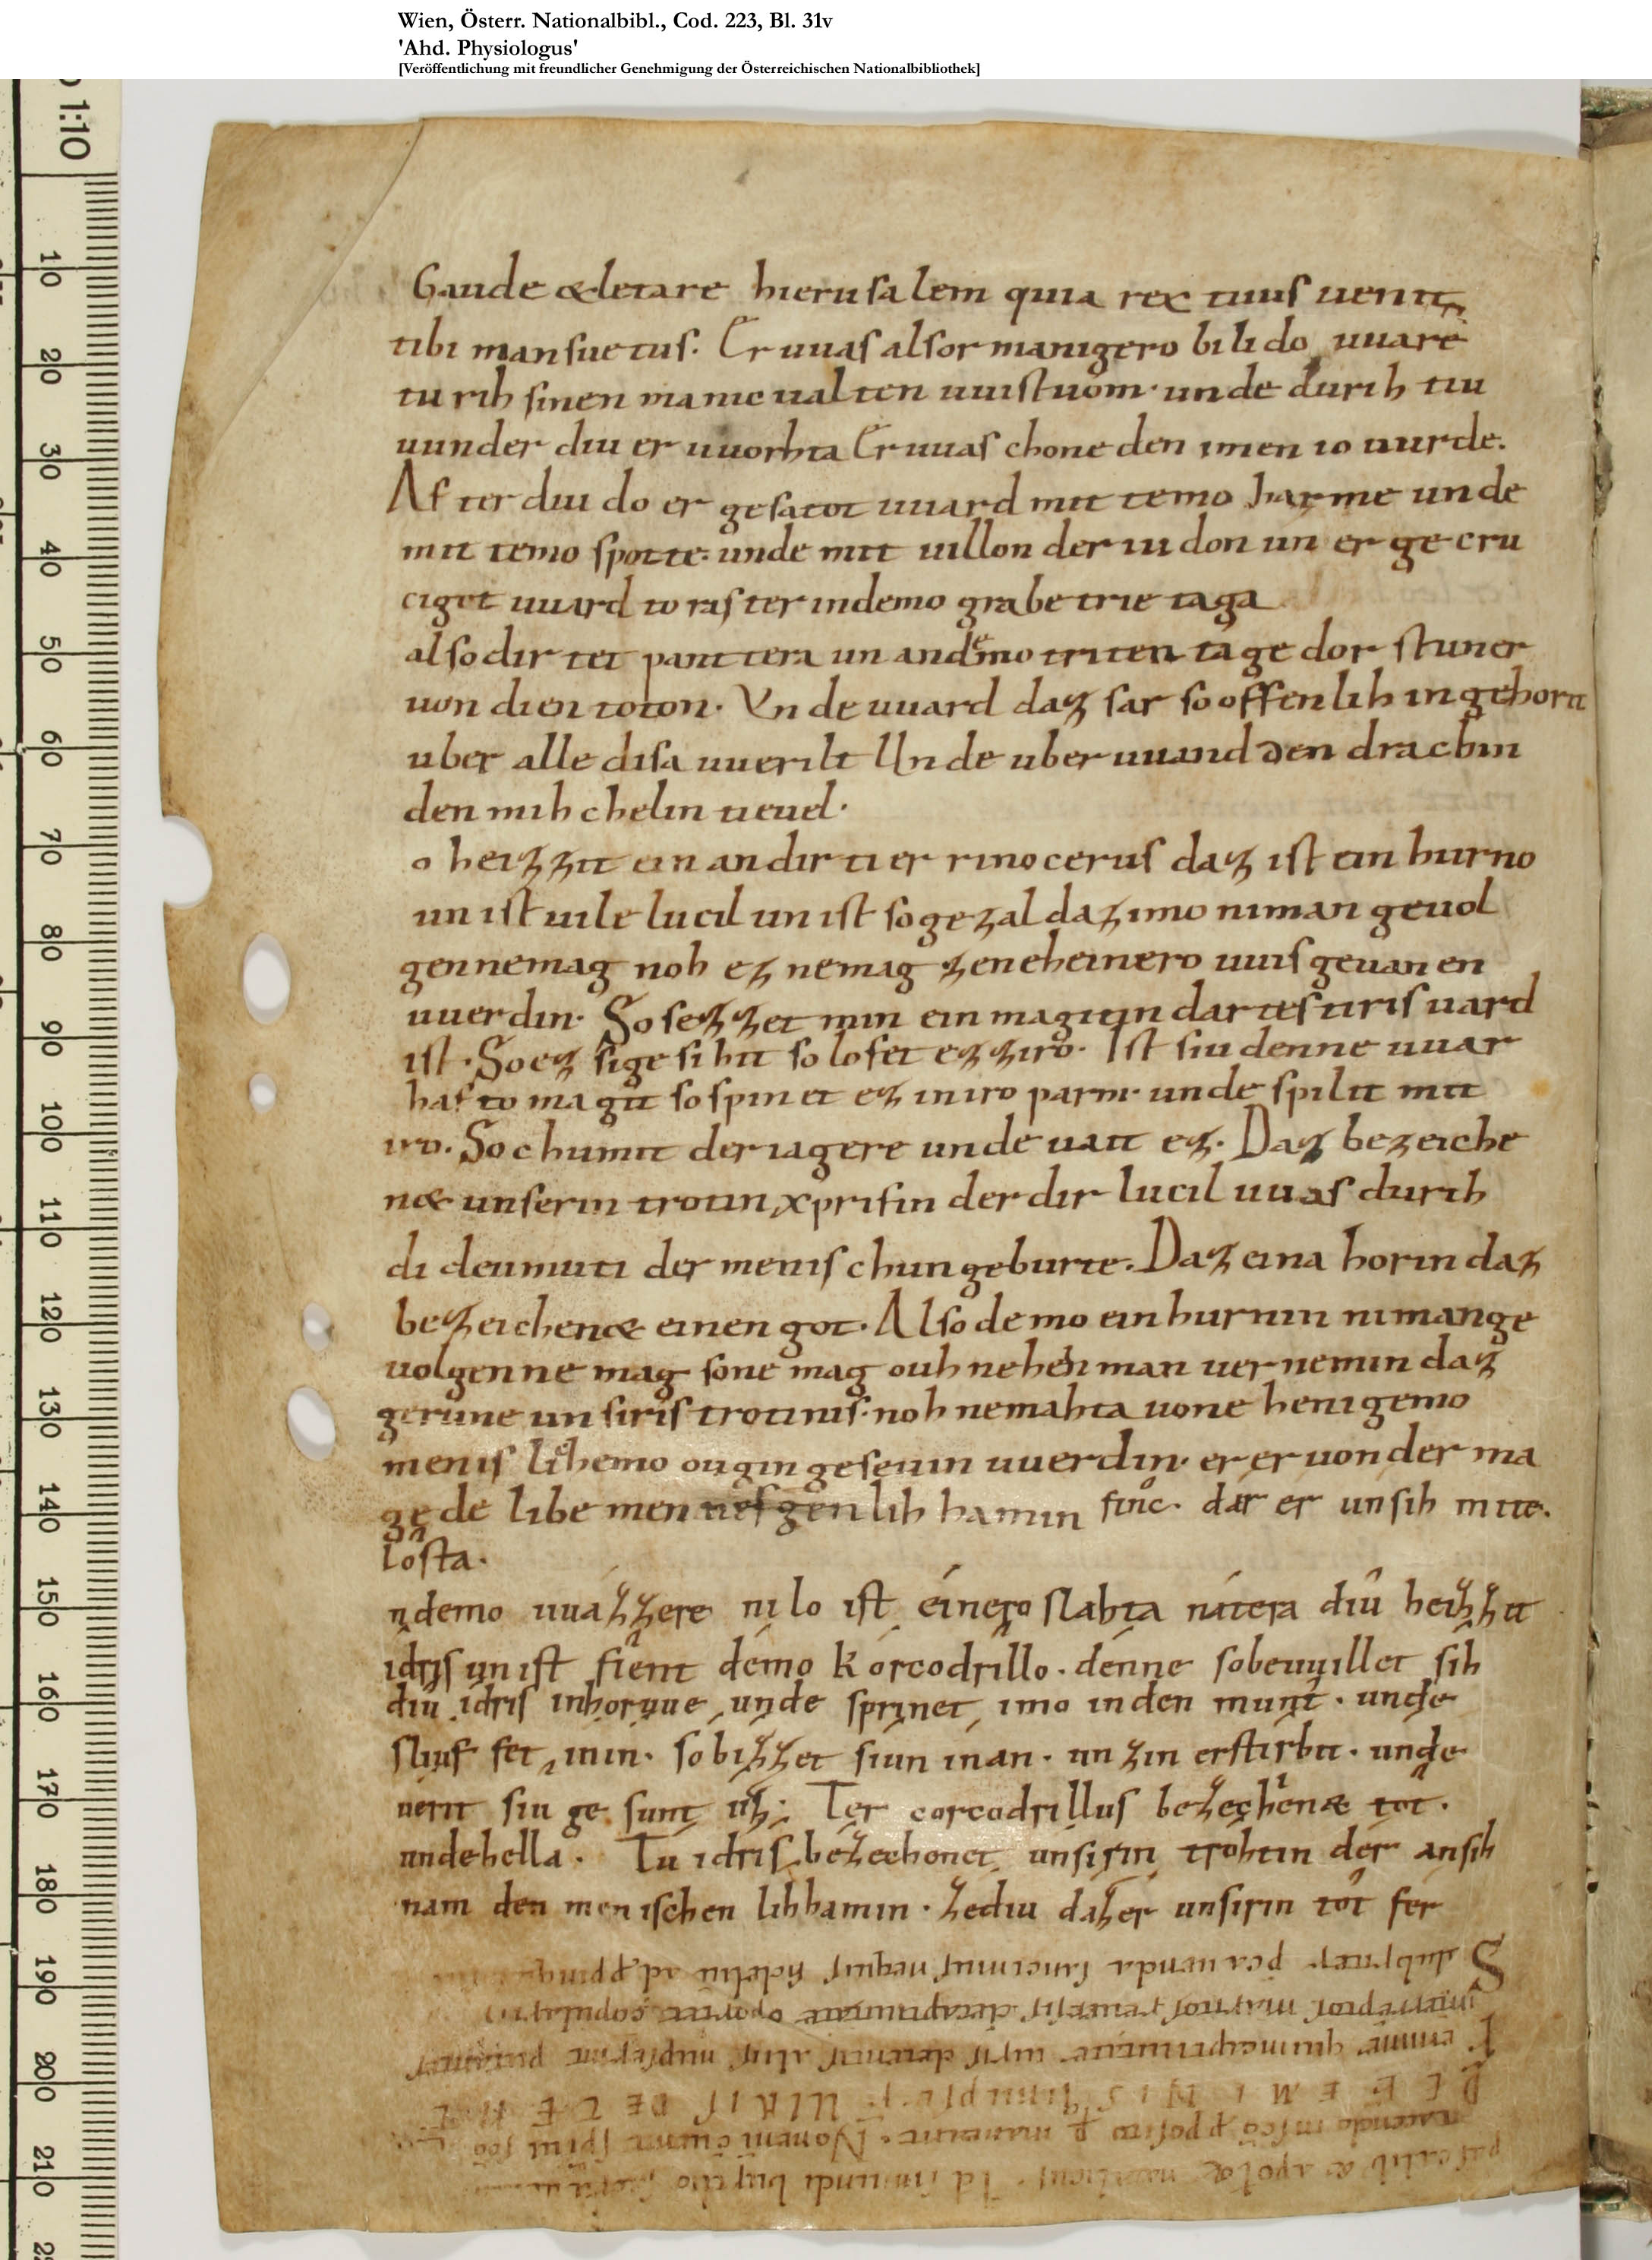 Wien, Österr. Nationalbibl., Cod. 223, Bl. 31v
'Ahd. Physiologus'
[Veröffentlichung mit freundlicher Genehmigung der Österreichischen Nationalbibliothek]
1:10
Gaude & letare hierusalem quia rex tuus uenit
tibi mansuetus. Er uuas alsor manigero bilido uuare
turih sinen manicualten uuistuom. unde durih tiu
uunder diu er uuorhta Er uuas schone den imen io uurde.
After diu do er gesatot uuard mit temo harme unde
mit temo spotte. unde mit uillon der iudon un er gecru
ciget uuard to raster in demo grabe trie taga
also dir tet panttera un andemo triten tage dor stuner
uon dien toton. Vnde uuard daz sar so offenlih ingehorit
uber alle disa uuerilt Unde uberuuand den drachin
den mihchelin tieuel.
o heizzit ein andir tier rinocerus daz ist einhurno
un ist uile lucil un ist so gezal daz imo niman geuol
gen nemag noh ez nemag zeneheinero uuis geuanen
uuerdin. So sezzet min ein magitin dar tes tiris uard
ist. So ez sige sihit so lofet ez ziro. Ist siu denne uuar
hafto magit so spinet ez in iro parm. unde spilit mit
iro. So chumit der iagere unde uait ez. Daz bezeiche
n& unserin trotin xpristin der dir lucil uuas durih
di deumuti der menischun geburte. Daz eina horin daz
bezeichen& einen got. Also demo einhurnin niman ge
uolgen ne mag sone mag ouh nehein man uernemin daz
gerune unsiris trotinis. noh nemahta uone henigemo
menislichemo ougin geseuin uuerdin. er er uon der ma
gede libe mennesgen lihhamin finc. dar er unsih mite.
losta.
ndemo uuazzere nilo ist einero slahta natera diu heizzit
idris un ist fient demo korcodrillo. denne so beuuillet sih
diu idris in horuue unde sprinet imo in den munt. unde
sliuffet inin. so bizzet siun inan. un zin erstirbit. unde
uerit siu gesunt uz: Ter corcodrillus bezechen& tot.
unde hella. Tu idris bezechonet unsirin trohtin der ansih
nam den menischen lihhamin. zediu daz er unsirin tot fer
10
20
30
40
50
60
70
80
90
100
110
120
130
140
150
160
170
180
190
200
210